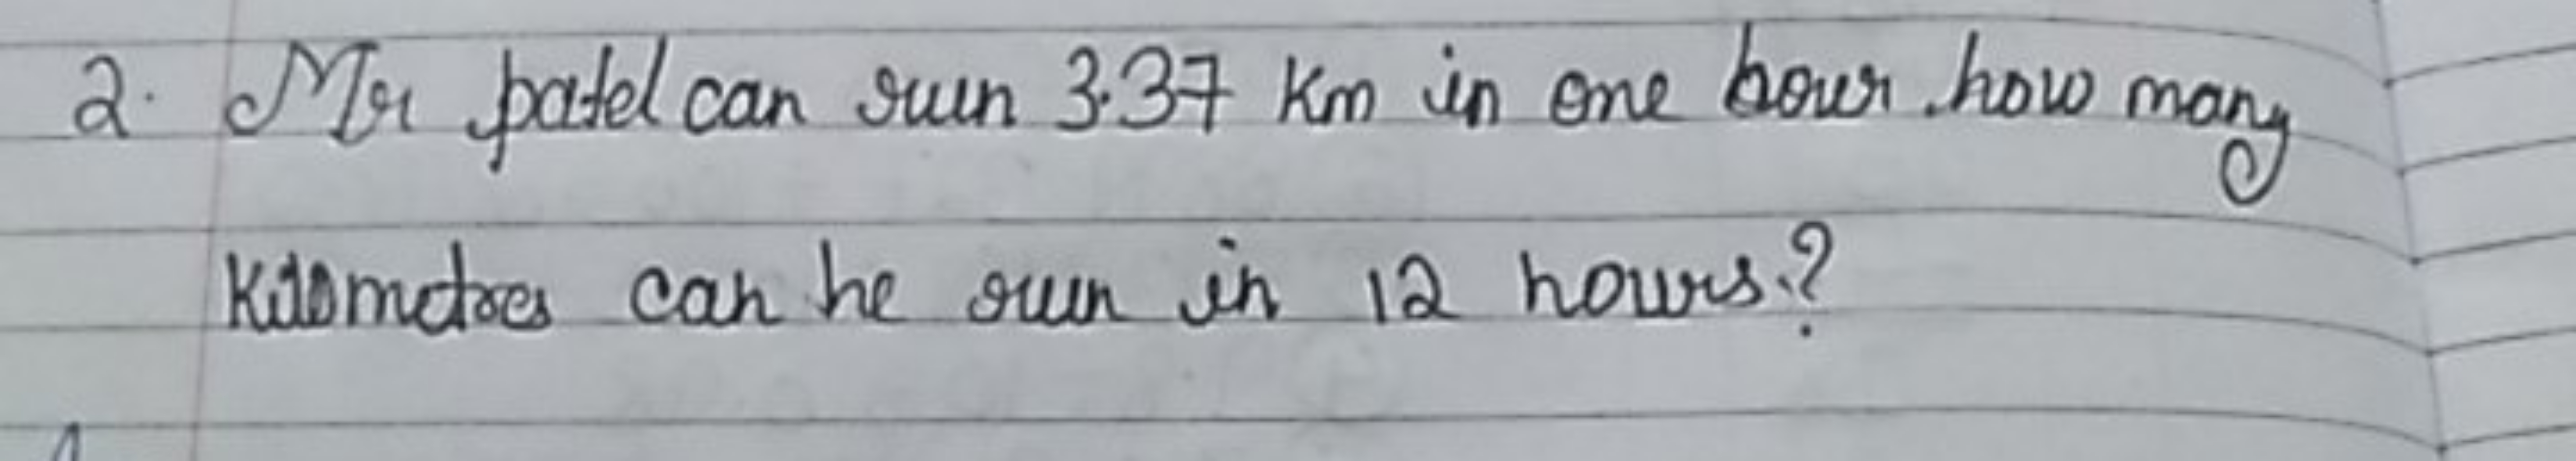 2. Mr patel can run 3.37 Km in one hour how many
Kilometres can he run in 12 hours?